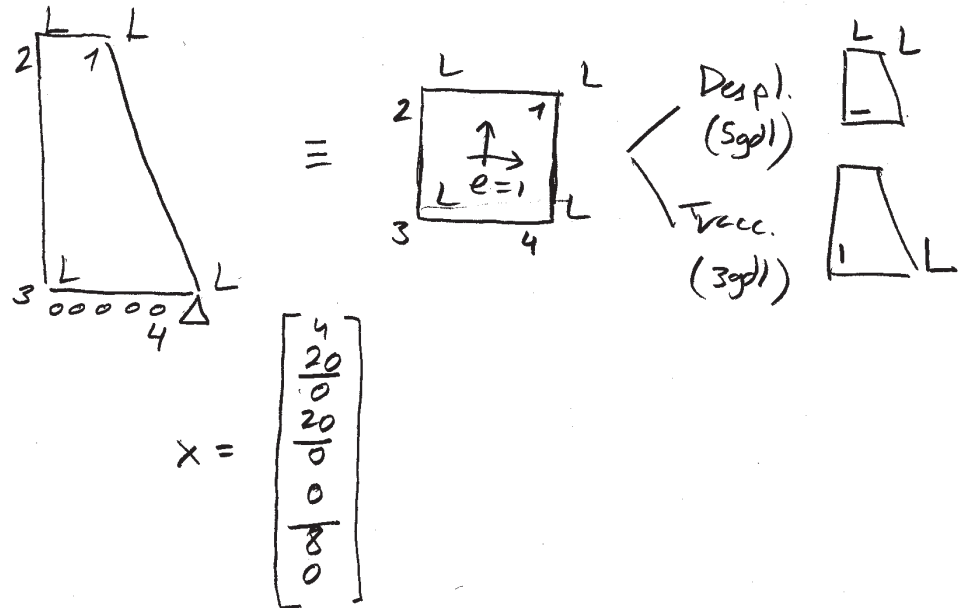 L L
2 1
3 L L
4
≡
L L
2 1
e=1
L L
3 4
Despl.
(5gdl)
L L
Tracc.
(3gdl)
L
x =
4
20
0
20
0
0
8
0